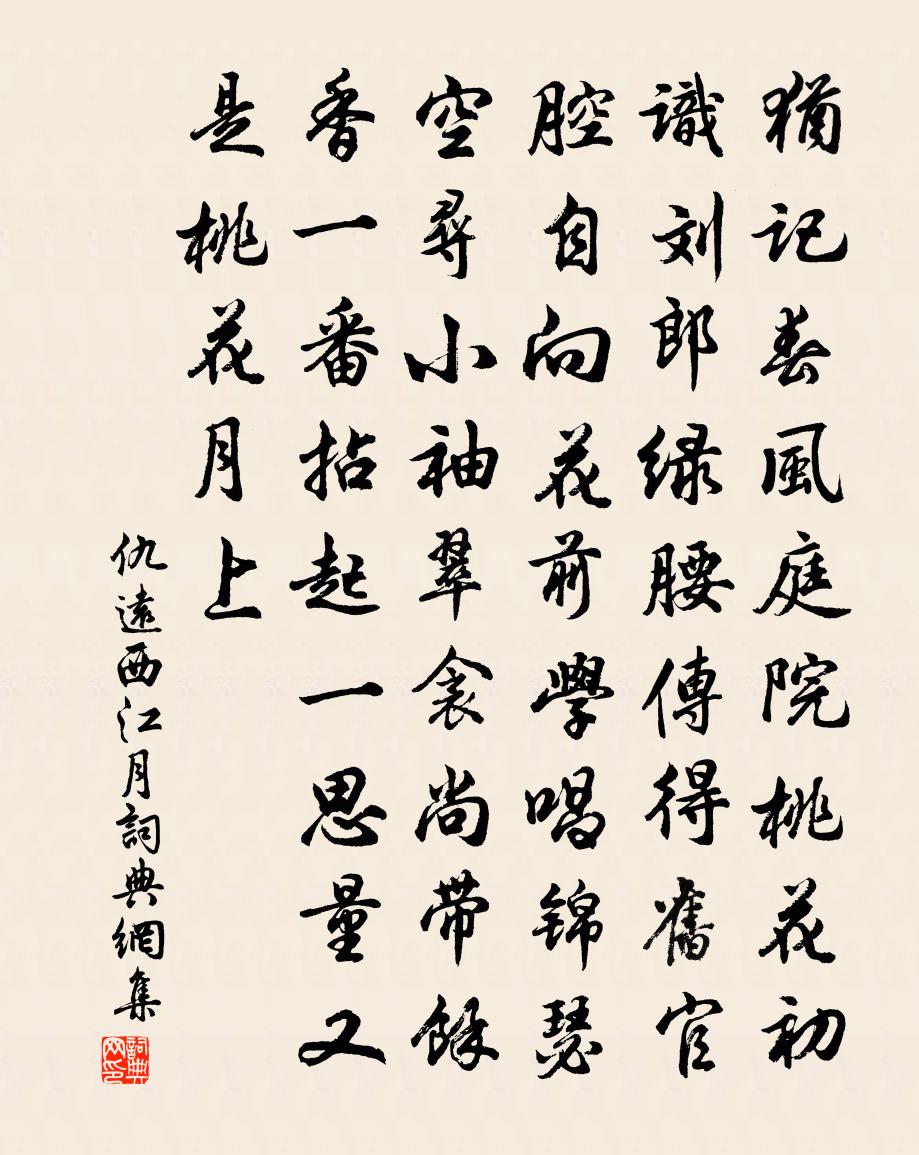 猶記春風庭院桃花初
識刘郎緑腰傳得舊官
腔自向花前學唱錦瑟
空尋小袖翠衾尚带餘
香一番拈起一思量又
是桃花月上
仇遠西江月詞典網集
詞典网印